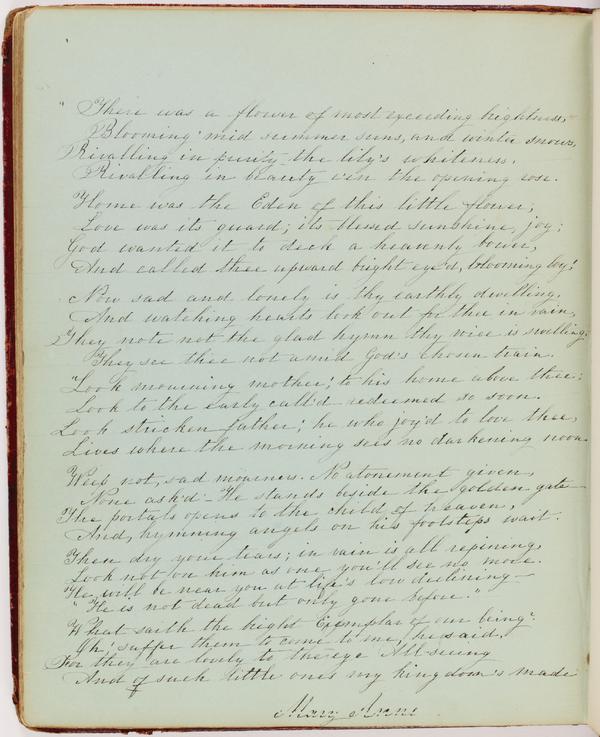 "There was a flower of most exceeding brightness,
Blooming 'mid summer suns, and winter snows,
Rivalling in purity the lily's whiteness,
Rivalling in beauty e'en the opening rose.
Home was the Eden of this little flower,
Love was its guard; its blessed sunshine, joy;
God wanted it to deck a heavenly bower,
And called thee upward bright eye'd, blooming boy!
Now sad and lonely is thy earthly dwelling.
And watching hearts look out for thee in vain,
They note not the glad hymn thy voice is swelling;
They see thee not amid God's chosen train.
"Look mourning mother; to his home above thee;
Look to the early call'd - redeemed so soon.
Look stricken father; he who joy'd to love thee,
Lives where the morning sees no darkening noon.
Weep not, sad mourners. No atonement given,
None ask'd - He stands beside the golden gate -
The portals opens to the child of heaven,
And, hymning angels on his footsteps wait.
Then dry your tears; in vain is all repining,
Look not on him as one you'll see no more.
He will be near you at life's low declining -
"He is not dead but only gone before."
What saith the bright Exemplar of our being?
Oh! suffer them to come to me, he said,
For they are lovely to the eye All-seeing
And of such little ones my kingdom's made
Mary Anne